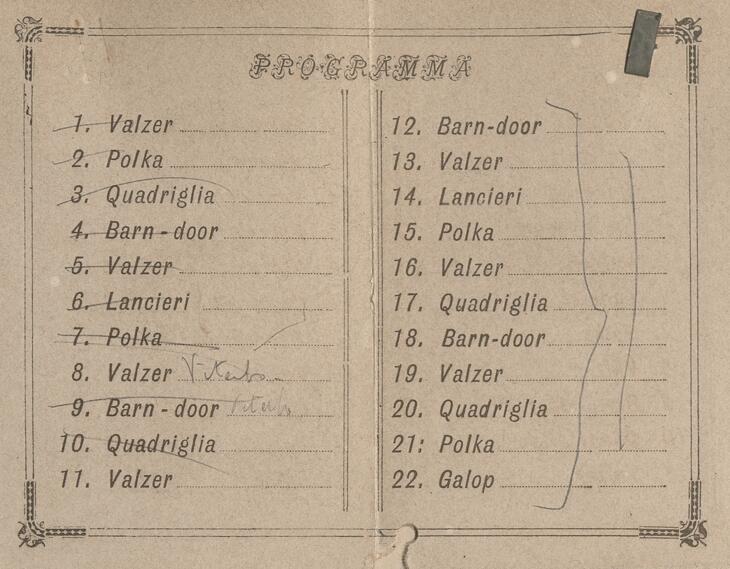 PROGRAMMA
1. Valzer
2. Polka
3. Quadriglia
4. Barn-door
5. Valzer
6. Lancieri
7. Polka
8. Valzer Viterbo
9. Barn-door Viterbo
10. Quadriglia
11. Valzer
12. Barn-door
13. Valzer
14. Lancieri
15. Polka
16. Valzer
17. Quadriglia
18. Barn-door
19. Valzer
20. Quadriglia
21: Polka
22. Galop